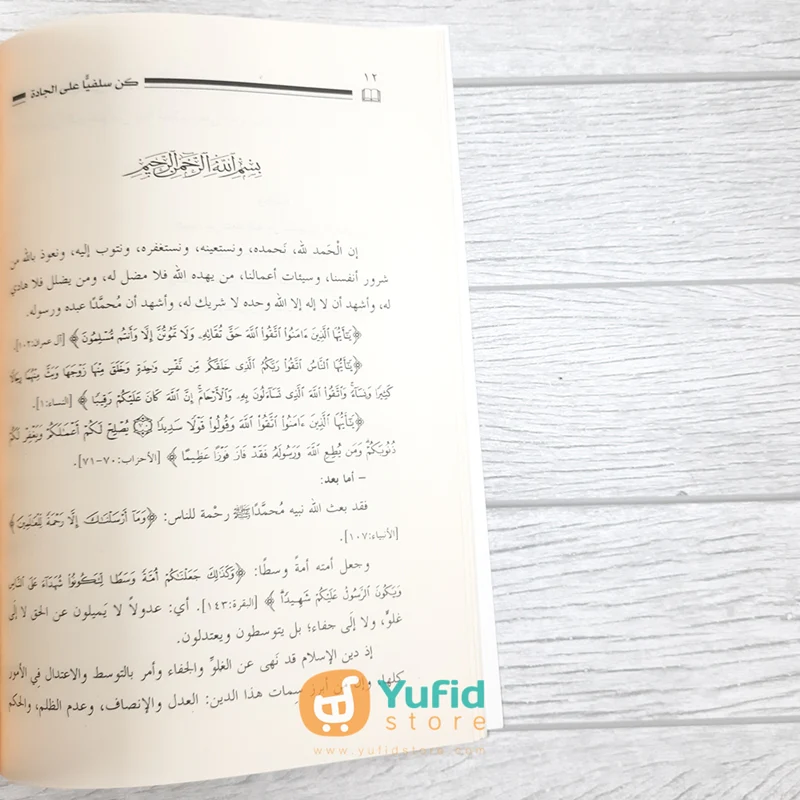 ١٢
كن سلفيًّا على الجادة
بِسْمِ ٱللَّهِ ٱلرَّحْمَٰنِ ٱلرَّحِيمِ
إن الْحَمد لله، نَحمده، ونستعينه، ونستغفره، ونتوب إليه، ونعوذ بالله من
شرور أنفسنا، وسيئات أعمالنا، من يهده الله فلا مضل له، ومن يضلل فلا هادي
له، وأشهد أن لا إله إلا الله وحده لا شريك له، وأشهد أن مُحمَّدًا عبده ورسوله.
﴿يَٰٓأَيُّهَا ٱلَّذِينَ ءَامَنُوا۟ ٱتَّقُوا۟ ٱللَّهَ حَقَّ تُقَاتِهِۦ وَلَا تَمُوتُنَّ إِلَّا وَأَنتُم مُّسْلِمُونَ﴾ [آل عمران:١٠٢].
﴿يَٰٓأَيُّهَا ٱلنَّاسُ ٱتَّقُوا۟ رَبَّكُمُ ٱلَّذِى خَلَقَكُم مِّن نَّفْسٍ وَٰحِدَةٍ وَخَلَقَ مِنْهَا زَوْجَهَا وَبَثَّ مِنْهُمَا رِجَالًا
كَثِيرًا وَنِسَآءً ۚ وَٱتَّقُوا۟ ٱللَّهَ ٱلَّذِى تَسَآءَلُونَ بِهِۦ وَٱلْأَرْحَامَ ۚ إِنَّ ٱللَّهَ كَانَ عَلَيْكُمْ رَقِيبًا﴾ [النساء:١].
﴿يَٰٓأَيُّهَا ٱلَّذِينَ ءَامَنُوا۟ ٱتَّقُوا۟ ٱللَّهَ وَقُولُوا۟ قَوْلًا سَدِيدًا ۝٧٠ يُصْلِحْ لَكُمْ أَعْمَٰلَكُمْ وَيَغْفِرْ لَكُمْ
ذُنُوبَكُمْ ۗ وَمَن يُطِعِ ٱللَّهَ وَرَسُولَهُۥ فَقَدْ فَازَ فَوْزًا عَظِيمًا﴾ [الأحزاب:٧٠-٧١].
– أما بعد:
فقد بعث الله نبيه مُحمَّدًا ﷺ رحْمة للناس: ﴿وَمَآ أَرْسَلْنَٰكَ إِلَّا رَحْمَةً لِّلْعَٰلَمِينَ﴾
[الأنبياء:١٠٧].
وجعل أمته أمةً وسطًا: ﴿وَكَذَٰلِكَ جَعَلْنَٰكُمْ أُمَّةً وَسَطًا لِّتَكُونُوا۟ شُهَدَآءَ عَلَى ٱلنَّاسِ
وَيَكُونَ ٱلرَّسُولُ عَلَيْكُمْ شَهِيدًا﴾ [البقرة:١٤٣]. أي: عدولاً لا يَميلون عن الحق لا إلَى
غلوٍّ، ولا إلَى جفاء؛ بل يتوسطون ويعتدلون.
إذ دين الإسلام قد نَهى عن الغلوِّ والجفاء وأمر بالتوسط والاعتدال فِي الأمور
كلها، وإن من أبرز سِمات هذا الدين: العدل والإنصاف، وعدم الظلم، والحكم
Yufid
store
www.yufidstore.com